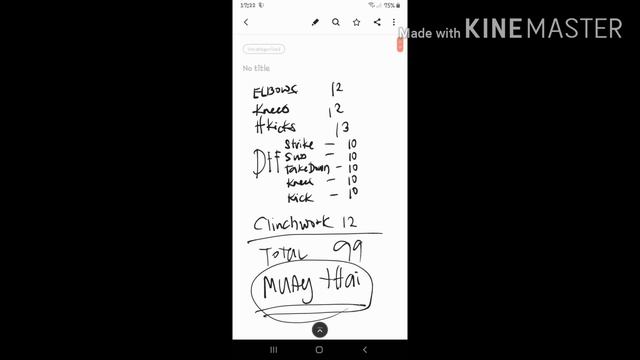 17:22
75%
Made with KINEMASTER
Uncategorized
No title
ELBOWS 12
Knees 12
HKicks 13
Strike - 10
Dff Sub - 10
TakeDown - 10
Knee - 10
Kick - 10
Clinchwork 12
TOTAL 99
MUAY THai